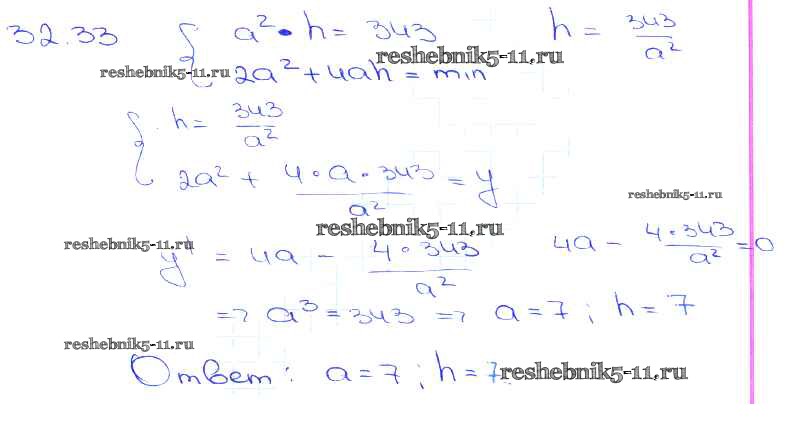 32.33 { a² • h = 343 h = 343/a²
reshebnik5-11.ru reshebnik5-11.ru
2a² + 4ah = min
{ h = 343/a²
2a² + 4•a•343/a² = y
reshebnik5-11.ru
reshebnik5-11.ru
reshebnik5-11.ru
y' = 4a - 4•343/a² 4a - 4•343/a² = 0
=> a³ = 343 => a = 7 ; h = 7
reshebnik5-11.ru
Ответ: a = 7 ; h = 7 reshebnik5-11.ru